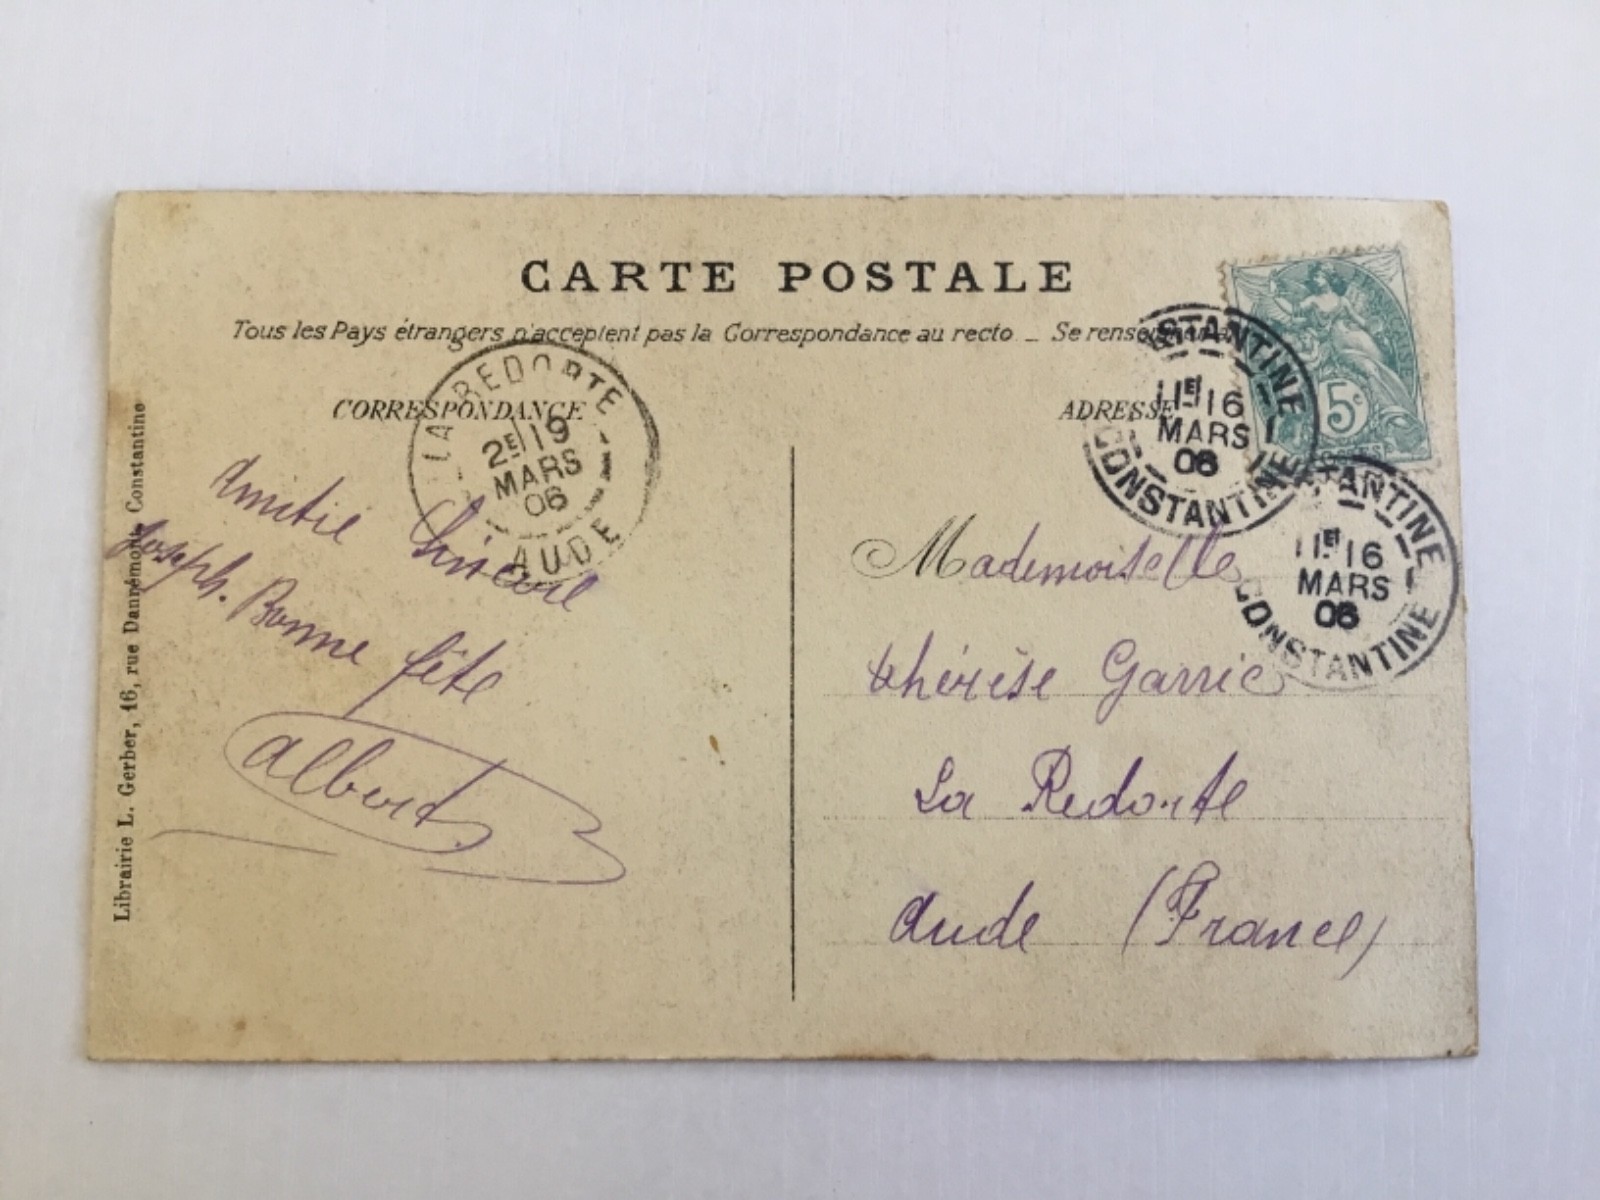 CARTE POSTALE
Tous les Pays étrangers n'acceptent pas la Correspondance au recto _ Se rens
CORRESPONDANCE
ADRESSE
LA REDORTE
2E 19
MARS
06
AUDE
STANTINE
1E 16
MARS
06
CONSTANTINE
5c
STANTINE
1E 16
MARS
06
CONSTANTINE
Amitié Sincère
Joseph. Bonne fête
Albert
Mademoiselle
Thérèse Garric
La Redorte
Aude (France)
Librairie L. Gerber, 16, rue Dannémont, Constantine